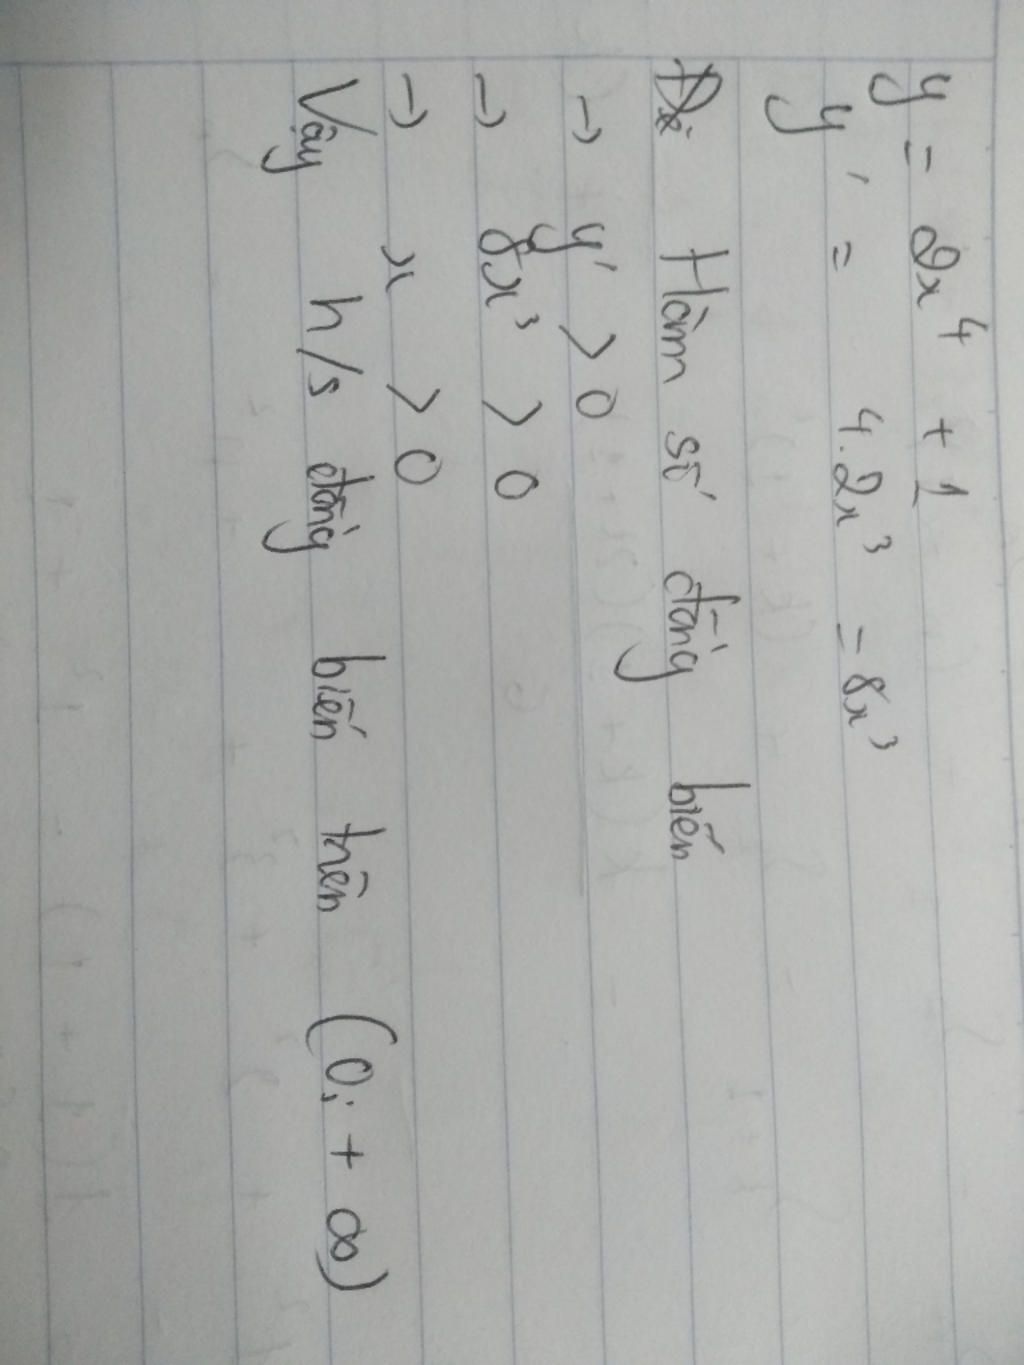 y = 2x⁴ + 1
y' = 4.2x³ = 8x³
Hàm số đồng biến
→ y' > 0
→ 8x³ > 0
→ x > 0
Vậy h/s đồng biến trên (0; + ∞)